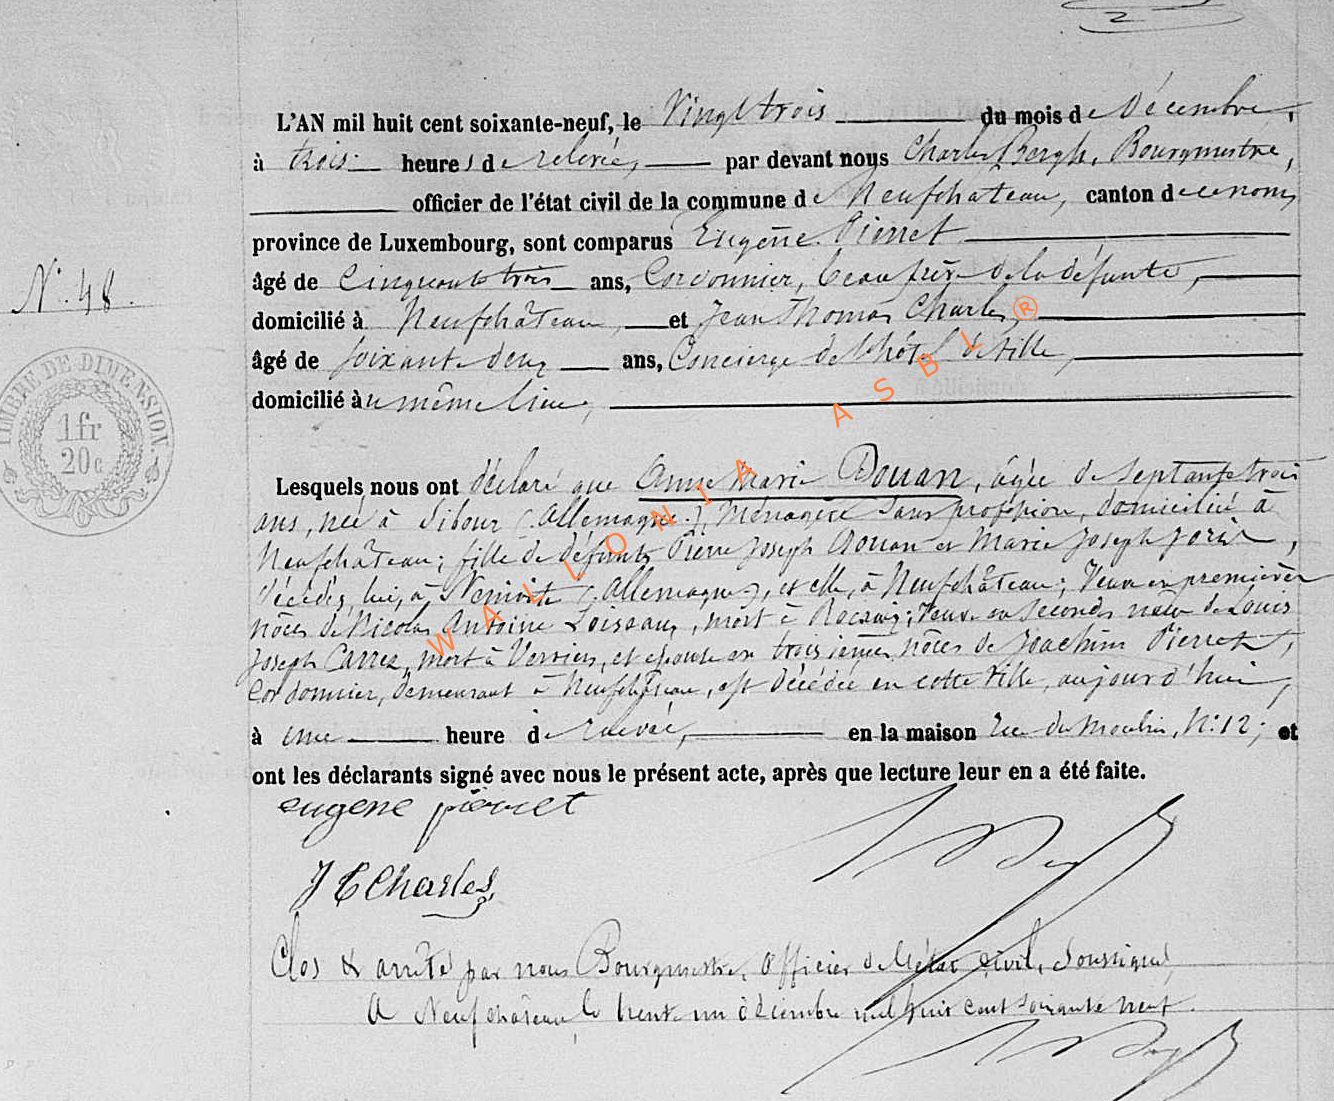 L'AN mil huit cent soixante-neuf, le Vingt trois du mois de Décembre,
à trois heures de relevée, par devant nous Charles Bergh, Bourgmestre,
officier de l'état civil de la commune de Neufchateau, canton de ce nom,
province de Luxembourg, sont comparus Eugène Pierret
N.° 48.
âgé de Cinquante trois ans, Cordonnier, beau frère de la défunte,
domicilié à Neufchâteau, et Jean Thomas Charles,
âgé de soixante deux ans, Concierge de l'hôtel de ville,
domicilié au même lieu,
TIMBRE DE DIMENSION.
1 fr
20 c
Lesquels nous ont déclaré que Anne Marie Douan, âgée de septante trois
ans, née à (Allemagne.), Ménagère sans profession, domiciliée à
Neufchâteau; fille de défunts Pierre Joseph Douan et Marie Joseph,
décédés, lui, à (Allemagne), et elle, à Neufchâteau; Veuve en premières
nôces de Nicolas Antoine Loiseau, mort à; Veuve en secondes nôces de Louis
Joseph Carrez, mort à Verviers, et épouse en troisièmes nôces de Joachim Pierret,
Cordonnier, demeurant à Neufchâteau, est décédée en cette ville, aujourd'hui,
à une heure de relevée, en la maison rue du Moulin, N.° 12; et
ont les déclarants signé avec nous le présent acte, après que lecture leur en a été faite.
eugene pierret
J T Charles
Clos & arrêté par nous Bourgmestre, officier de l'état civil, soussigné,
A Neufchâteau, le trente un décembre mil huit cent soixante neuf.
WALLONIA ASBL ®